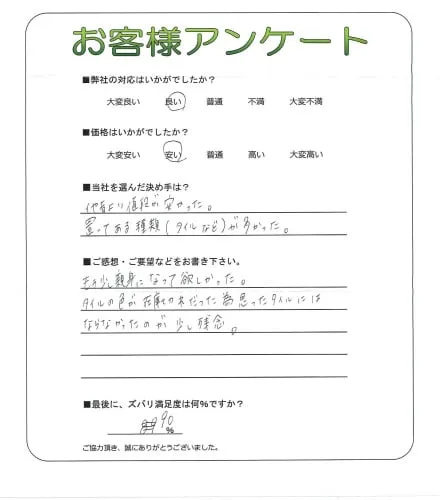 お客様アンケート
■弊社の対応はいかがでしたか？
大変良い 良い 普通 不満 大変不満
■価格はいかがでしたか？
大変安い 安い 普通 高い 大変高い
■当社を選んだ決め手は？
他者より値段が安かった。
置いてある種類(タイルなど)が多かった。
■ご感想・ご要望などをお書き下さい。
もう少し親身になって欲しかった。
タイルの色が在庫切れだった為思ったタイルには
ならなかったのが少し残念。
■最後に、ズバリ満足度は何%ですか？
90
%
ご協力頂き、誠にありがとうございました。